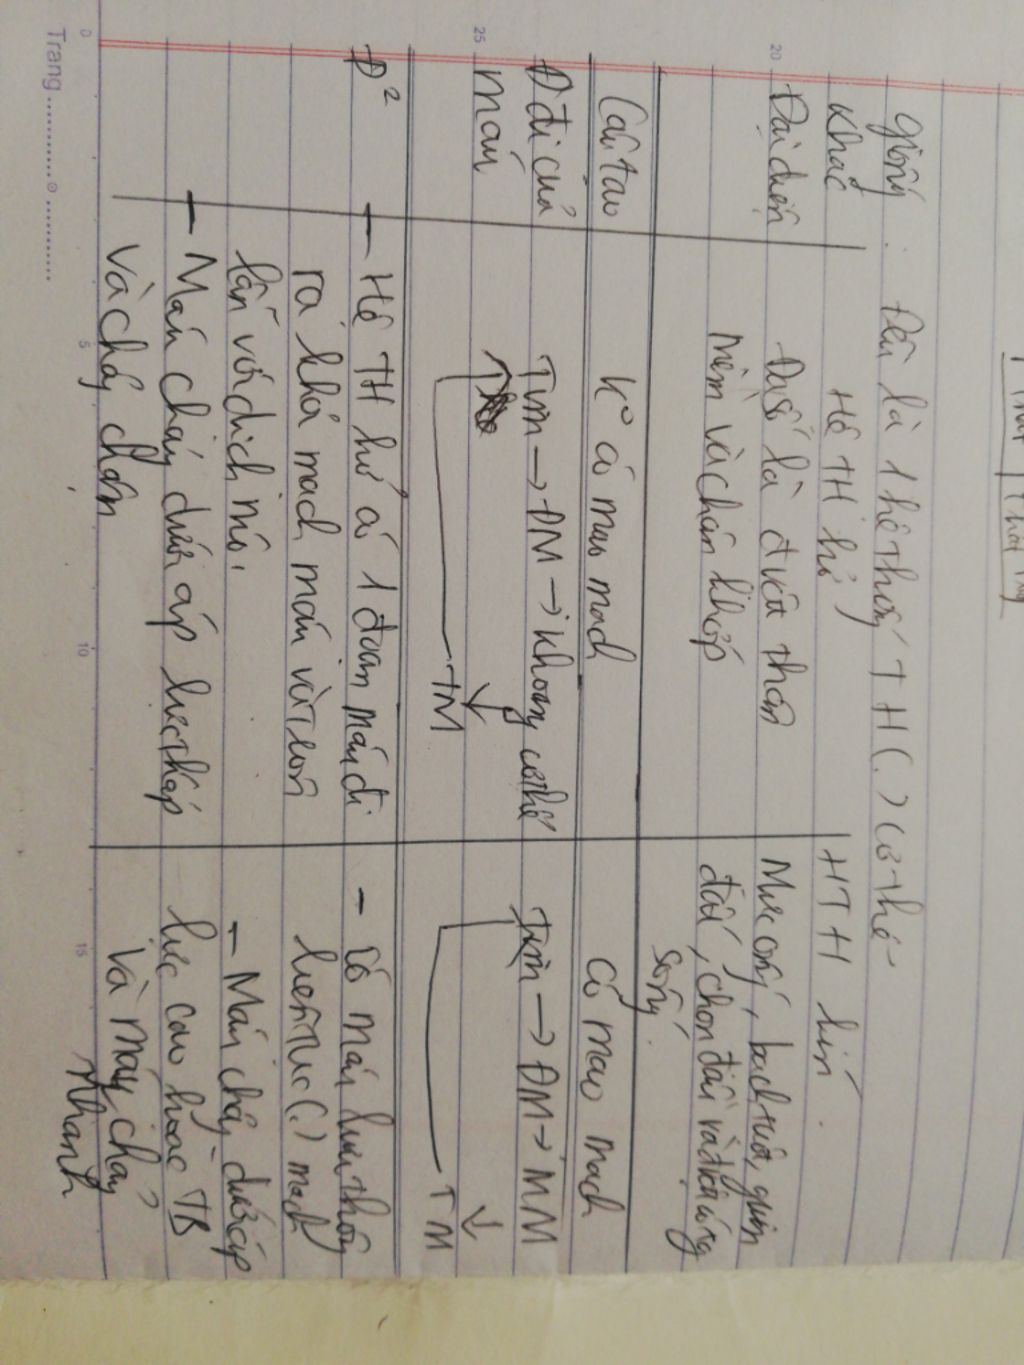 giống: Đều là 1 hệ thống TH (.) cơ thể
Khác Hệ TH hở HTH kín.
Đại diện Đa số là đvật thân Mực ống, bạch tuộc, giun
mềm và chân khớp đất, chân đầu và đvật có xg
sống.
Cấu tạo K° có mao mạch Có mao mạch
Đ đi của Tim → ĐM → khoang cơ thể Tim → ĐM → MM
máu ↑ ↓ ↓
TM TM
Đ² - Hệ TH hở có 1 đoạn máu đi - Có máu lưu thông
ra khỏi mạch máu và trộn liên tục (.) mạch
lẫn với dịch mô. - Máu chảy dưới áp
- Máu chảy dưới áp lực thấp lực cao hoặc TB
và chảy chậm và máu chảy
nhanh
Trang
0 5 10 15
20
25